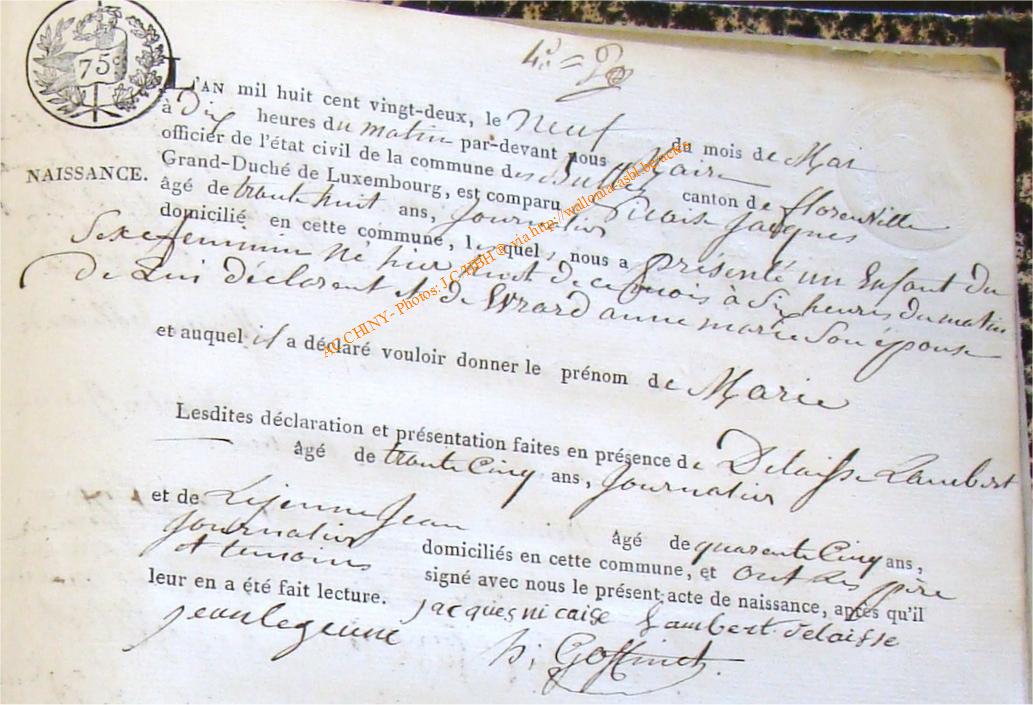 75c
L'AN mil huit cent vingt-deux, le Neuf du mois de Mai
à Dix heures du matin par-devant nous Maire
officier de l'état civil de la commune des Bulles canton de florenville
NAISSANCE.
Grand-Duché de Luxembourg, est comparu Nicaise Jacques
âgé de trente huit ans, Journalier
domicilié en cette commune, lesquels nous a présenté un Enfant du
Sexe feminin né hier huit de ce mois à Six heures du matin
de Lui déclarant et de Evrard anne marie Son épouse
et auquel il a déclaré vouloir donner le prénom de Marie
Lesdites déclaration et présentation faites en présence de Delaisse Lambert
âgé de trente Cinq ans, Journalier
et de Lejeune Jean âgé de quarente Cinq ans,
Journalier domiciliés en cette commune, et ont Les père
et temoins signé avec nous le présent acte de naissance, après qu'il
leur en a été fait lecture.
jacques nicaise Lambert delaisse
jean lejeune
h. j. Goffinet
AC CHINY - Photos: J.C. HBH @ via http://wallonia-asbl.be/actes